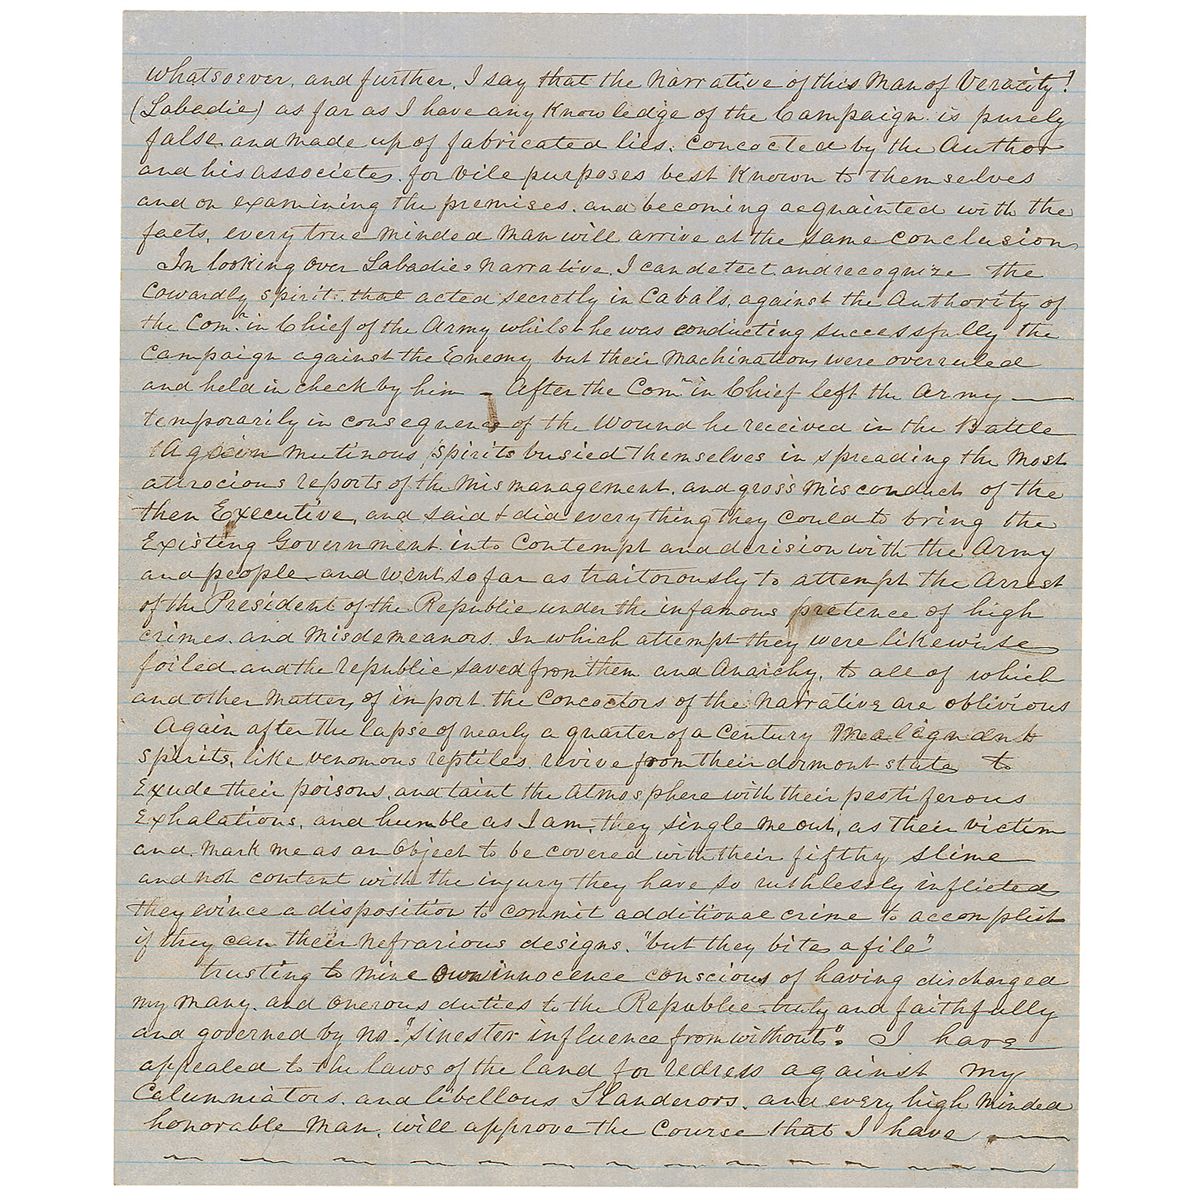 whatsoever, and further, I say that the Narrative of this Man of Veracity!
(Labadie) as far as I have any Knowledge of the Campaign is purely
false, and made up of fabricated lies, concocted by the Author
and his associates, for vile purposes best Known to themselves
and on examining the premises, and becoming acquainted with the
facts, every true minded Man will arrive at the same conclusion
In looking over Labadies Narrative, I can detect and recognize the
cowardly spirit that acted secretly in Cabals, against the Authority of
the Comr in Chief of the Army whilst he was conducting successfully the
campaign against the Enemy but their Machinations were overruled
and held in check by him - After the Comr in Chief left the Army
temporarily in consequence of the Wound he received in the Battle
Again mutinous spirits busied themselves in spreading the Most
attrocious reports of the Mismanagement, and gross Misconduct of the
then Executive, and said & did everything they could to bring the
Existing Government into Contempt and derision with the Army
and people and went so far as traitorously to attempt the Arrest
of the President of the Republic under the infamous pretence of high
crimes, and Misdemeanors. In which attempt they were likewise
foiled and the republic saved from them and Anarchy, to all of which
and other Matter of import the Concoctors of the Narrative are oblivious
Again after the lapse of nearly a quarter of a Century Malignant
spirits, like venomous reptiles revive from their dormont state to
Exude their poisons, and taint the Atmosphere with their pestiferous
Exhalations, and humble as I am, they single me out, as their victim
and Mark me as an Object to be covered with their filthy slime
and not content with the injury they have so ruthlessly inflicted
they evince a disposition to commit additional crime to accomplish
if they can their Nefrarious designs, "but they bite a file"
trusting to Mine Own innocence conscious of having discharged
my many, and onerous duties to the Republic truly and faithfully
and governed by no "sinester influence from without". I have
appealed to the laws of the land for redress against my
Calumniators, and libellous Slanderors, and every high Minded
honorable Man, will approve the Course that I have